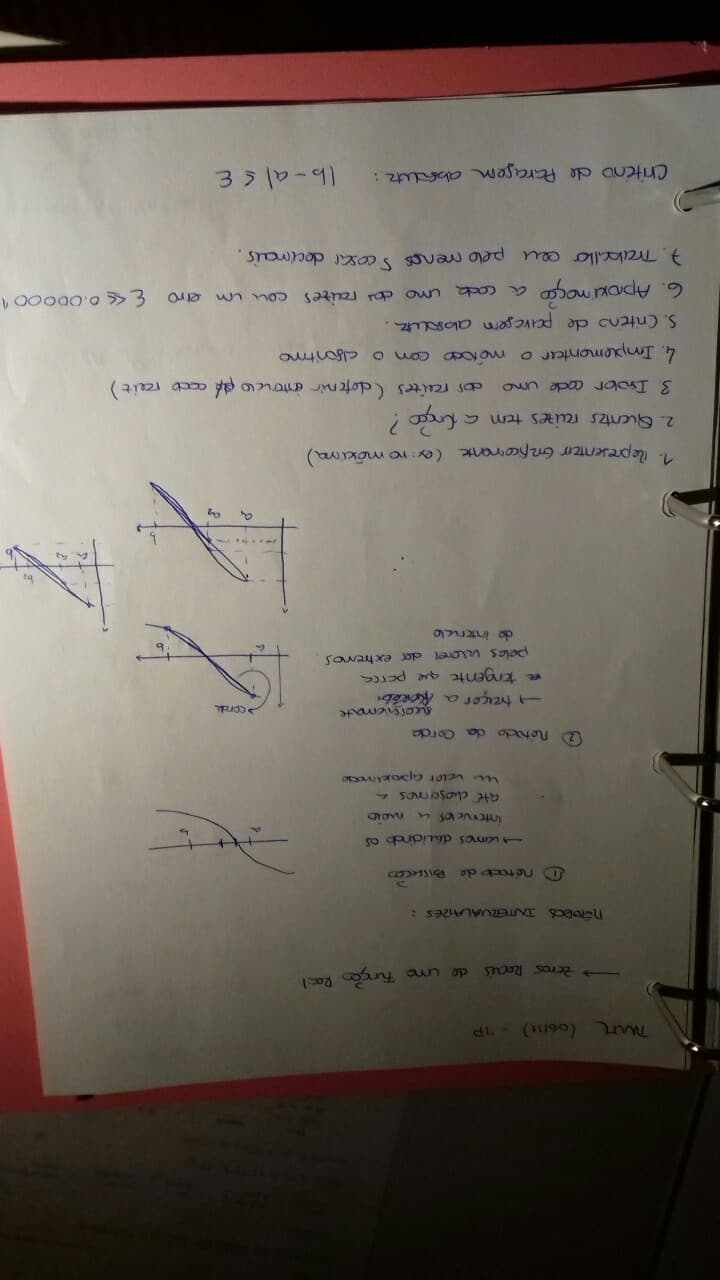 (06/11) - TP
→ Zeros Reais de uma Função Real
MÉTODOS INTERVALARES :
① Método de Bisseção
→ vamos dividindo os
intervalos a meio
até chegarmos a
um valor aproximado
② Método da Corda
→ traçar a sucessivamente
tangente que passa
pelos valores dos extremos
do intervalo
a
b
→ corda
a
b
a1
a2
b
a1
a2
b2
b
1. Representar Graficamente (ex: no máxima)
2. Quantas raízes tem a função ?
3. Isolar cada uma das raízes (definir intervalo p/ cada raiz)
4. Implementar o método com o algoritmo
5. Critério de paragem absoluta.
6. Aproximação a cada uma das raízes com um erro ε ≤ 0.000001
7. Trabalhar com pelo menos 5 casas decimais.
Critério de Paragem absoluta : |b - a| ≤ ε